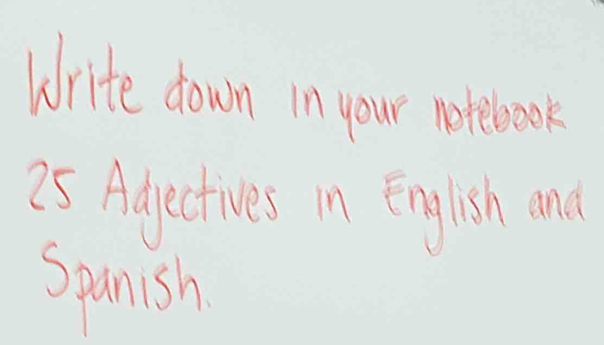 Write down in your notebook
25 Adjectives in English and
Spanish.